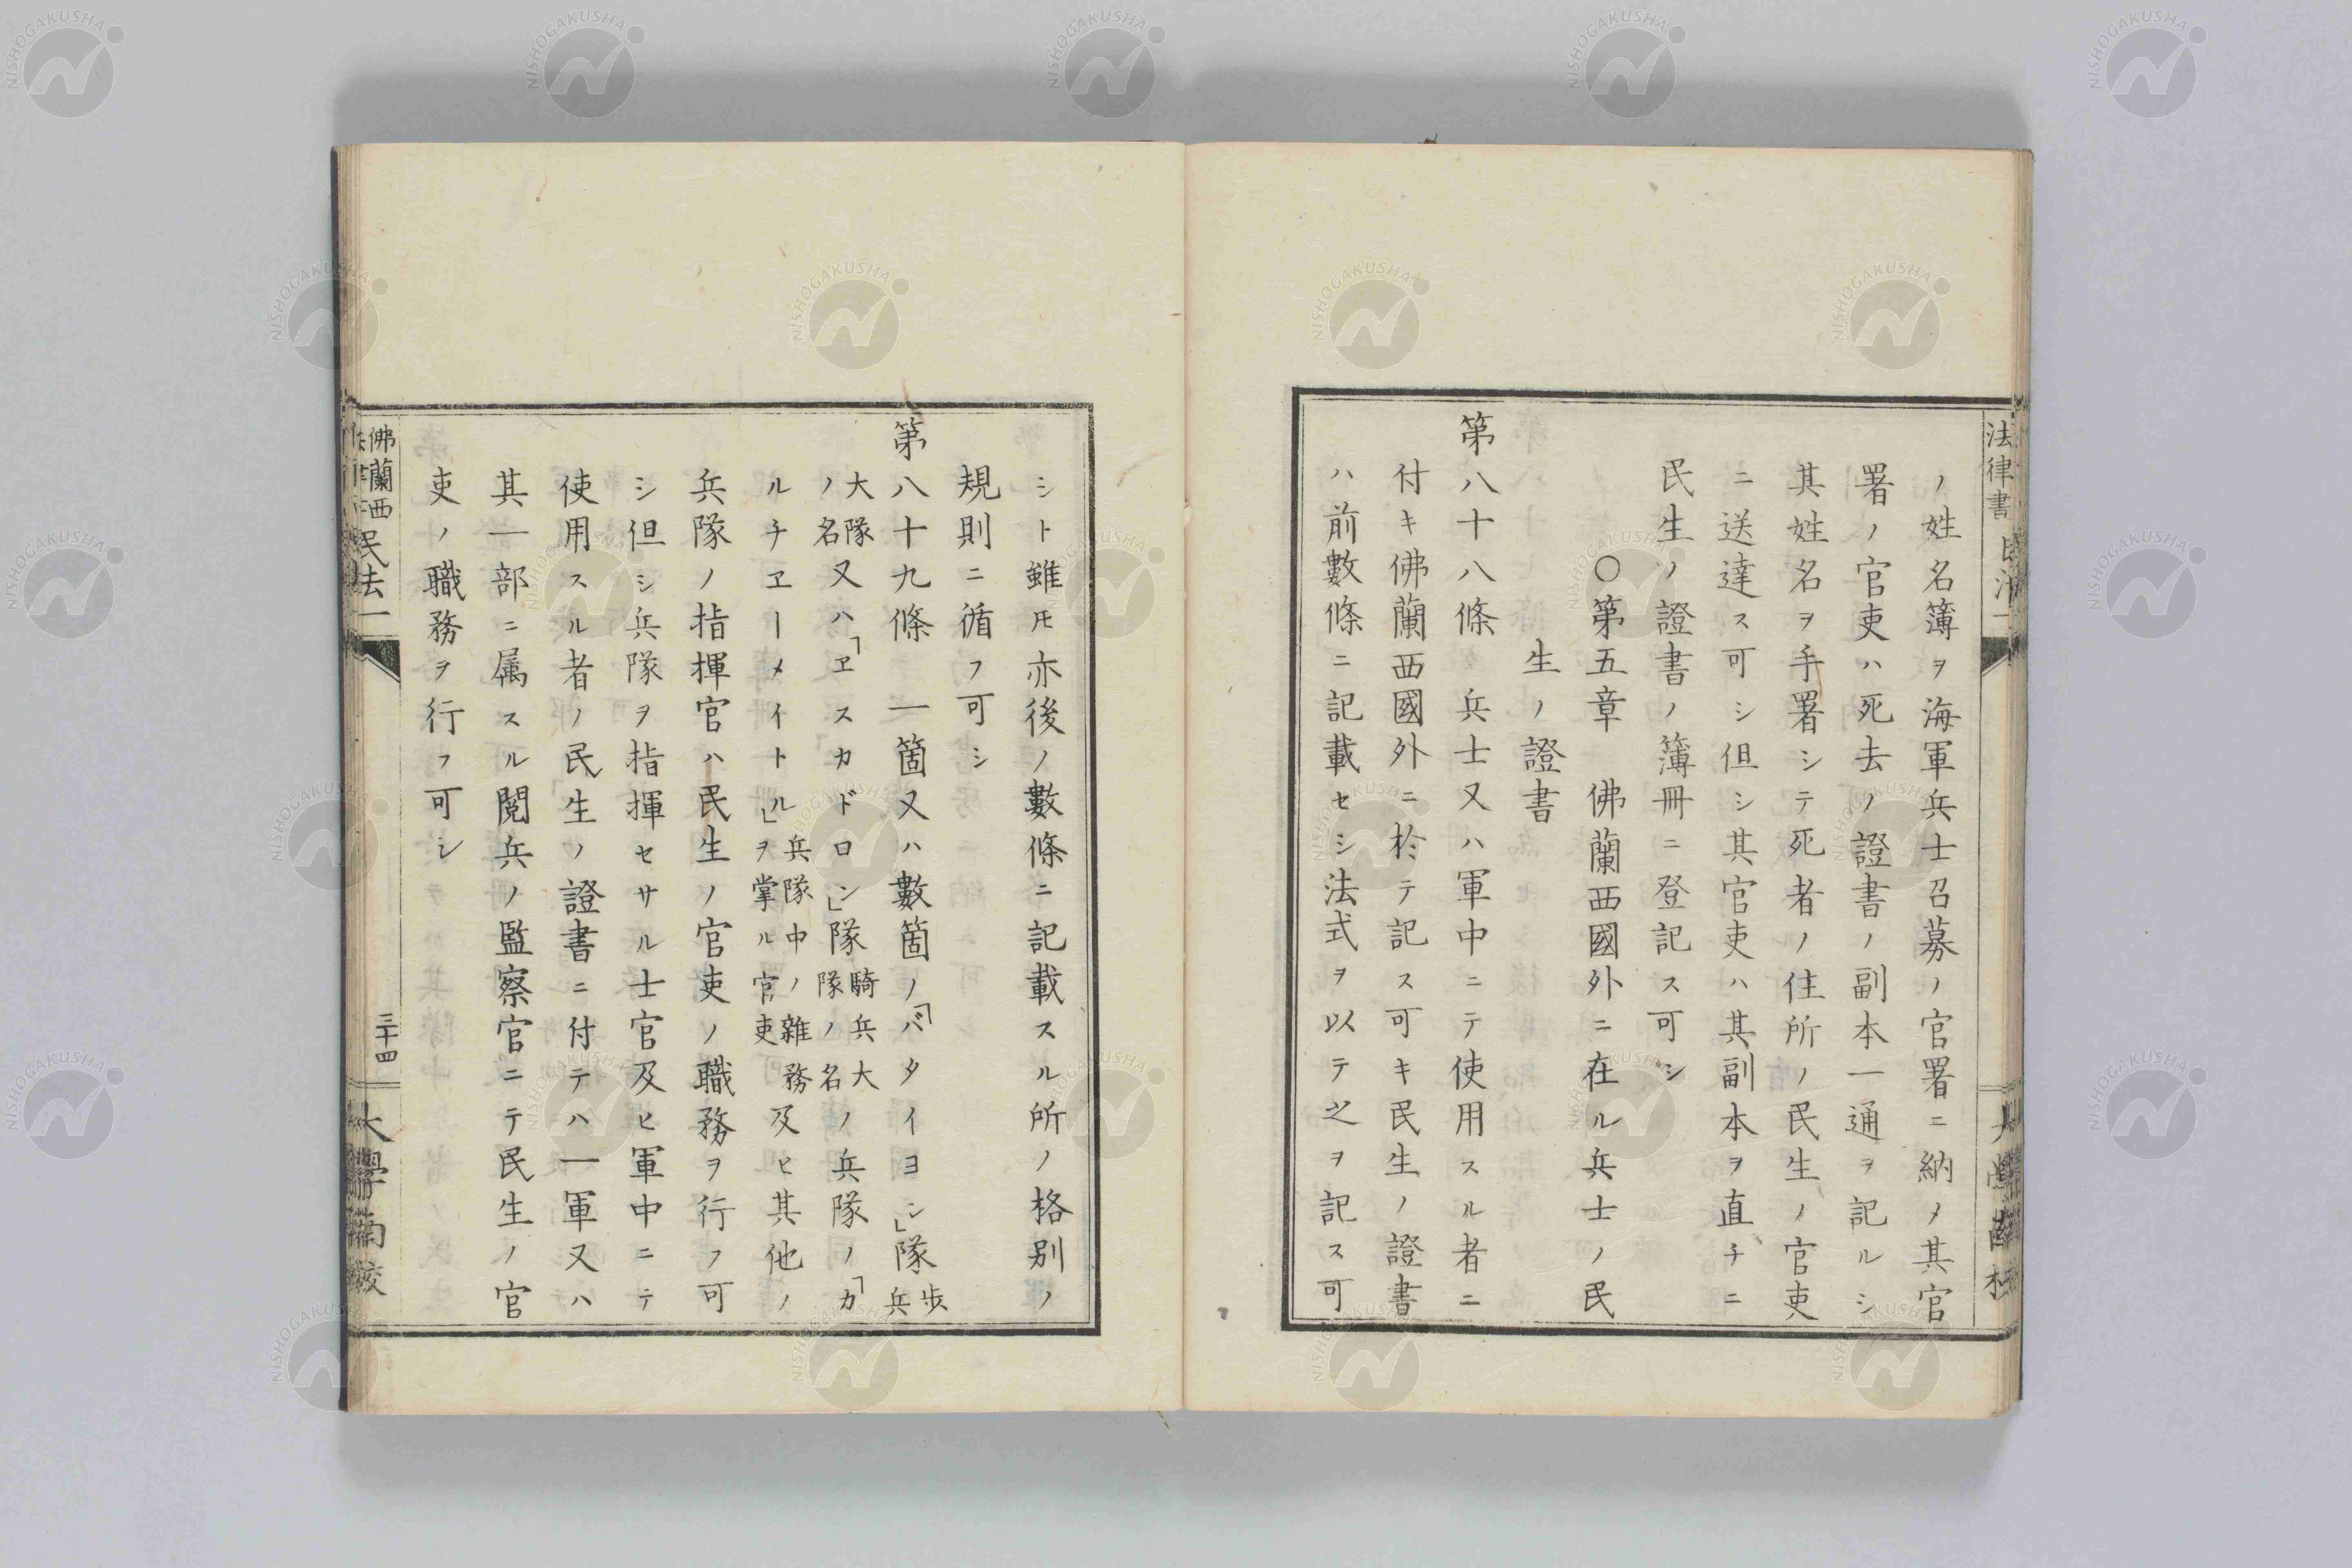 ノ姓名簿ヲ海軍兵士召募ノ官署ニ納メ其官
署ノ官吏ハ死去ノ證書ノ副本一通ヲ記ルシ
其姓名ヲ手署シテ死者ノ住所ノ民生ノ官吏
ニ送達ス可シ但シ其官吏ハ其副本ヲ直チニ
民生ノ證書ノ簿冊ニ登記ス可シ
○第五章 佛蘭西國外ニ在ル兵士ノ民
生ノ證書
第八十八條 兵士又ハ軍中ニテ使用スル者ニ
付キ佛蘭西國外ニ於テ記ス可キ民生ノ證書
ハ前數條ニ記載セシ法式ヲ以テ之ヲ記ス可
シト雖𪜈亦後ノ數條ニ記載スル所ノ格別ノ
規則ニ循フ可シ
第八十九條 一箇又ハ數箇ノ「バタイヨン」隊歩兵
大隊ノ名又ハ「ヱスカドロン」隊騎兵大隊ノ名ノ兵隊ノ「カ
ルチヱーメイトル」兵隊中ノ雜務ヲ掌ル官吏及ヒ其他ノ
兵隊ノ指揮官ハ民生ノ官吏ノ職務ヲ行フ可
シ但シ兵隊ヲ指揮セサル士官及ヒ軍中ニテ
使用スル者ノ民生ノ證書ニ付テハ一軍又ハ
其一部ニ属スル閲兵ノ監察官ニテ民生ノ官
吏ノ職務ヲ行フ可シ
佛蘭西
民法一
三十四
大學南校
法律書
NISHOGAKUSHA